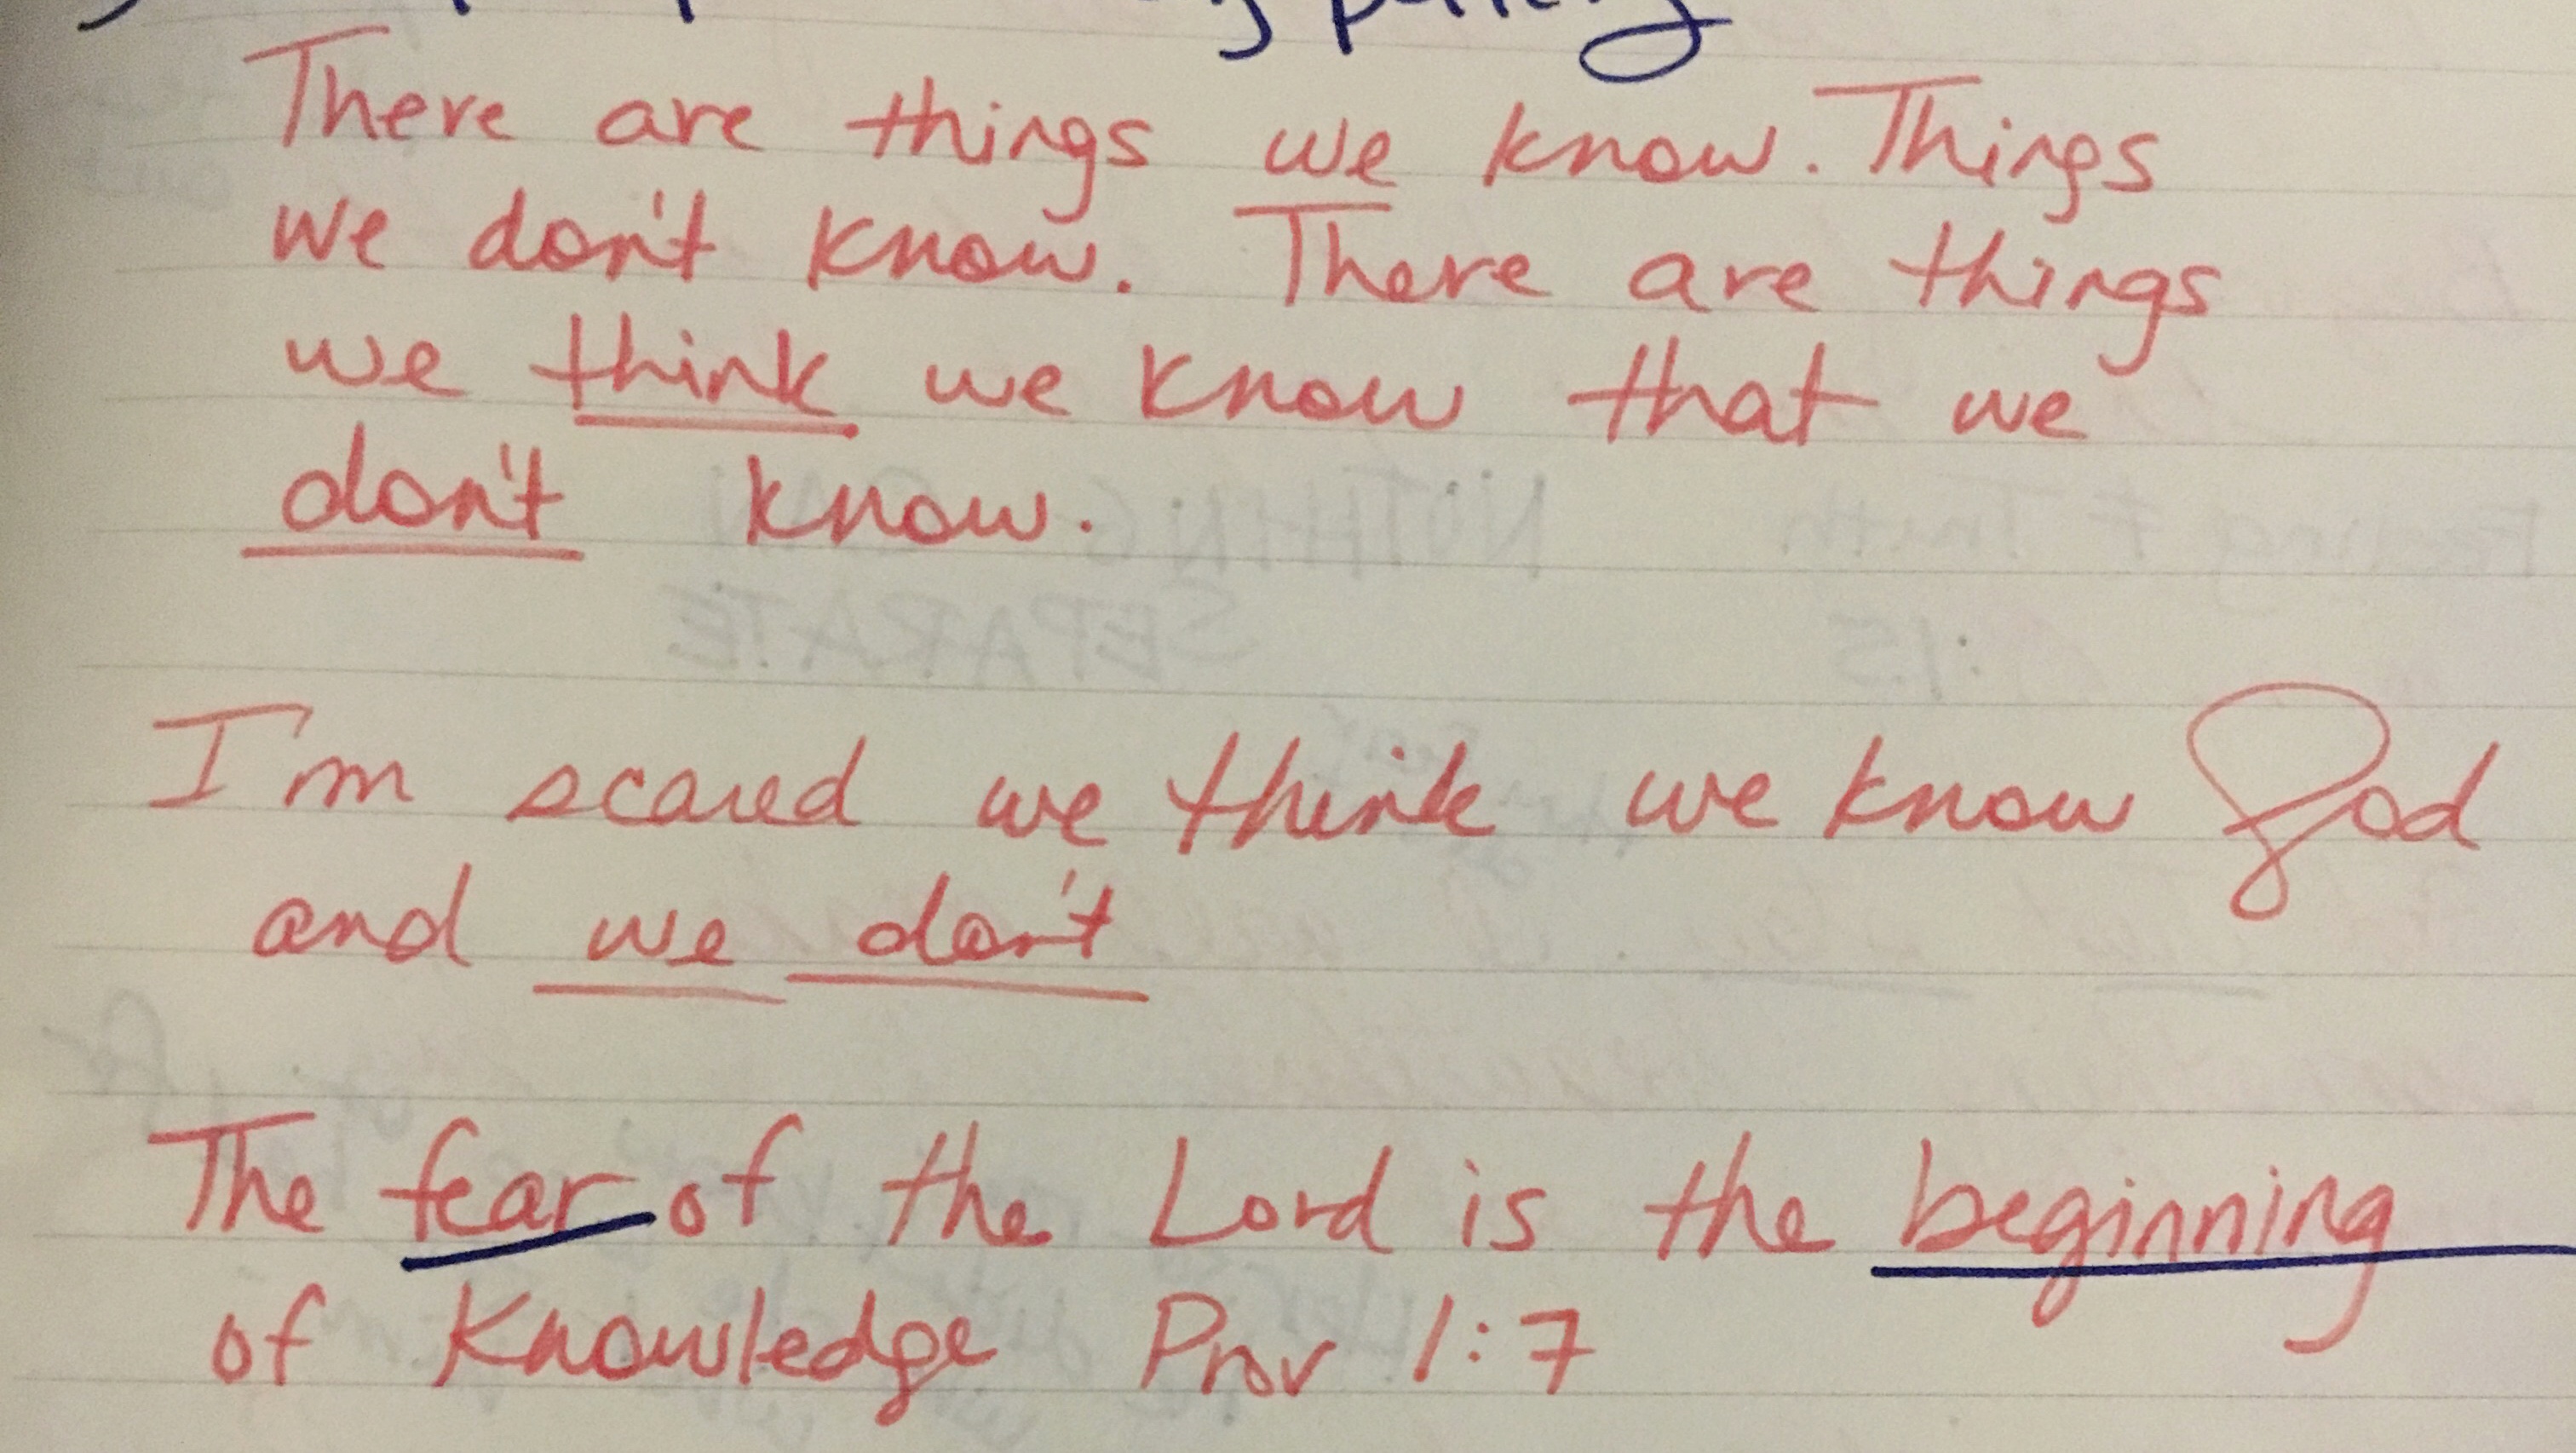 There are things we know. Things
we don't know. There are things
we think we know that we
don't know.
I'm scared we think we know God
and we don't
The fear of the Lord is the beginning
of Knowledge Prov 1:7